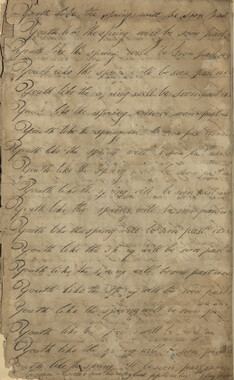 Youth like the spring will be soon past
Youth like the spring will be soon past
Youth like the spring will be soon past
Youth like the spring will be soon past
Youth like the spring will be soon past
Youth like the spring
Youth like the spring
Youth like the spring will be soon past
Youth like the spring will be
Youth like the spring will be soon past
Youth like the spring will be soon past
Youth like the spring will be soon past
Youth like the spring will be soon past
Youth like the spring will be soon past
Youth like the spring will be soon past
Youth like the spring will be soon past
Youth like the spring will be
Youth like the spring will be soon past
Youth like the spring will be soon past